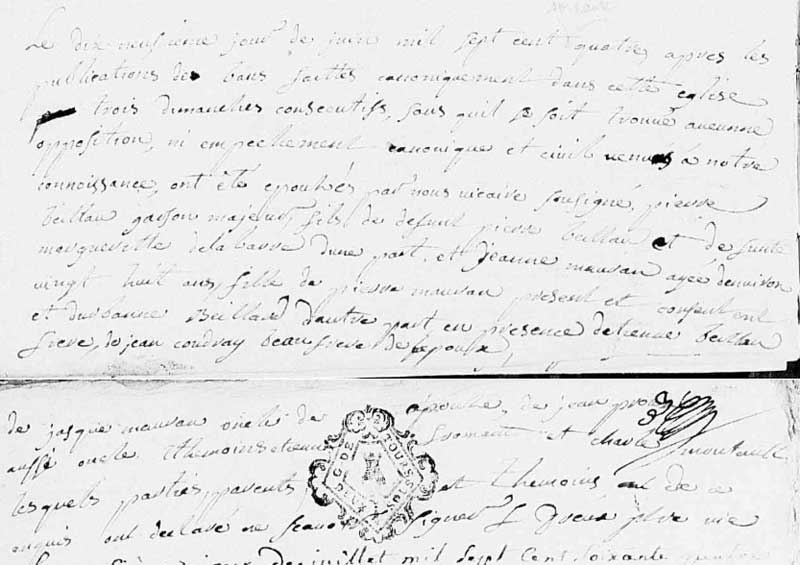 Le dix neufième jour de juin mil sept cent quatre, apres les
publications de bans faittes canoniquement dans cette eglise
trois dimanches consecutifs, sans quil se soit trouvé aucunne
opposition, ni empeschement canonique et civil venus à notre
connoissance, ont été epousés par nous vicaire sousigné, pierre
beillau garson majeur fils de defunt pierre beillau et de
margueritte delabarre dune part, et jeanne mauvau agée denviron
vingt huit ans fille de pierre mauvau present et consentent
et durbanne d'autre part, en presence detienne beillau
frere, de jean coudray beau frere de lepoux,
de jasque mauvau oncle de epouse, de jean
aussi oncle themoins et charle
lesquels parties, parents et themoins de ce
enquis ont declaré ne scavoir signer ptre vic
G. DE TOURS
jour de juillet mil sept cent soixante quatre